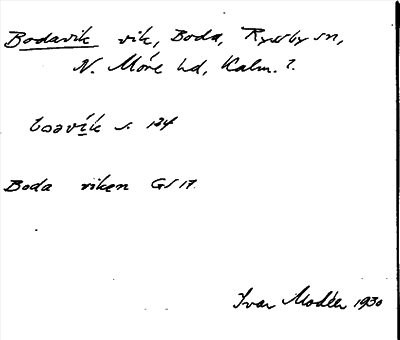 Bodavik vik, Boda, Ryssby sn,
N. Möre hd, Kalm. l.
s. 124
Boda viken GS 17.
Ivar Modéer 1930